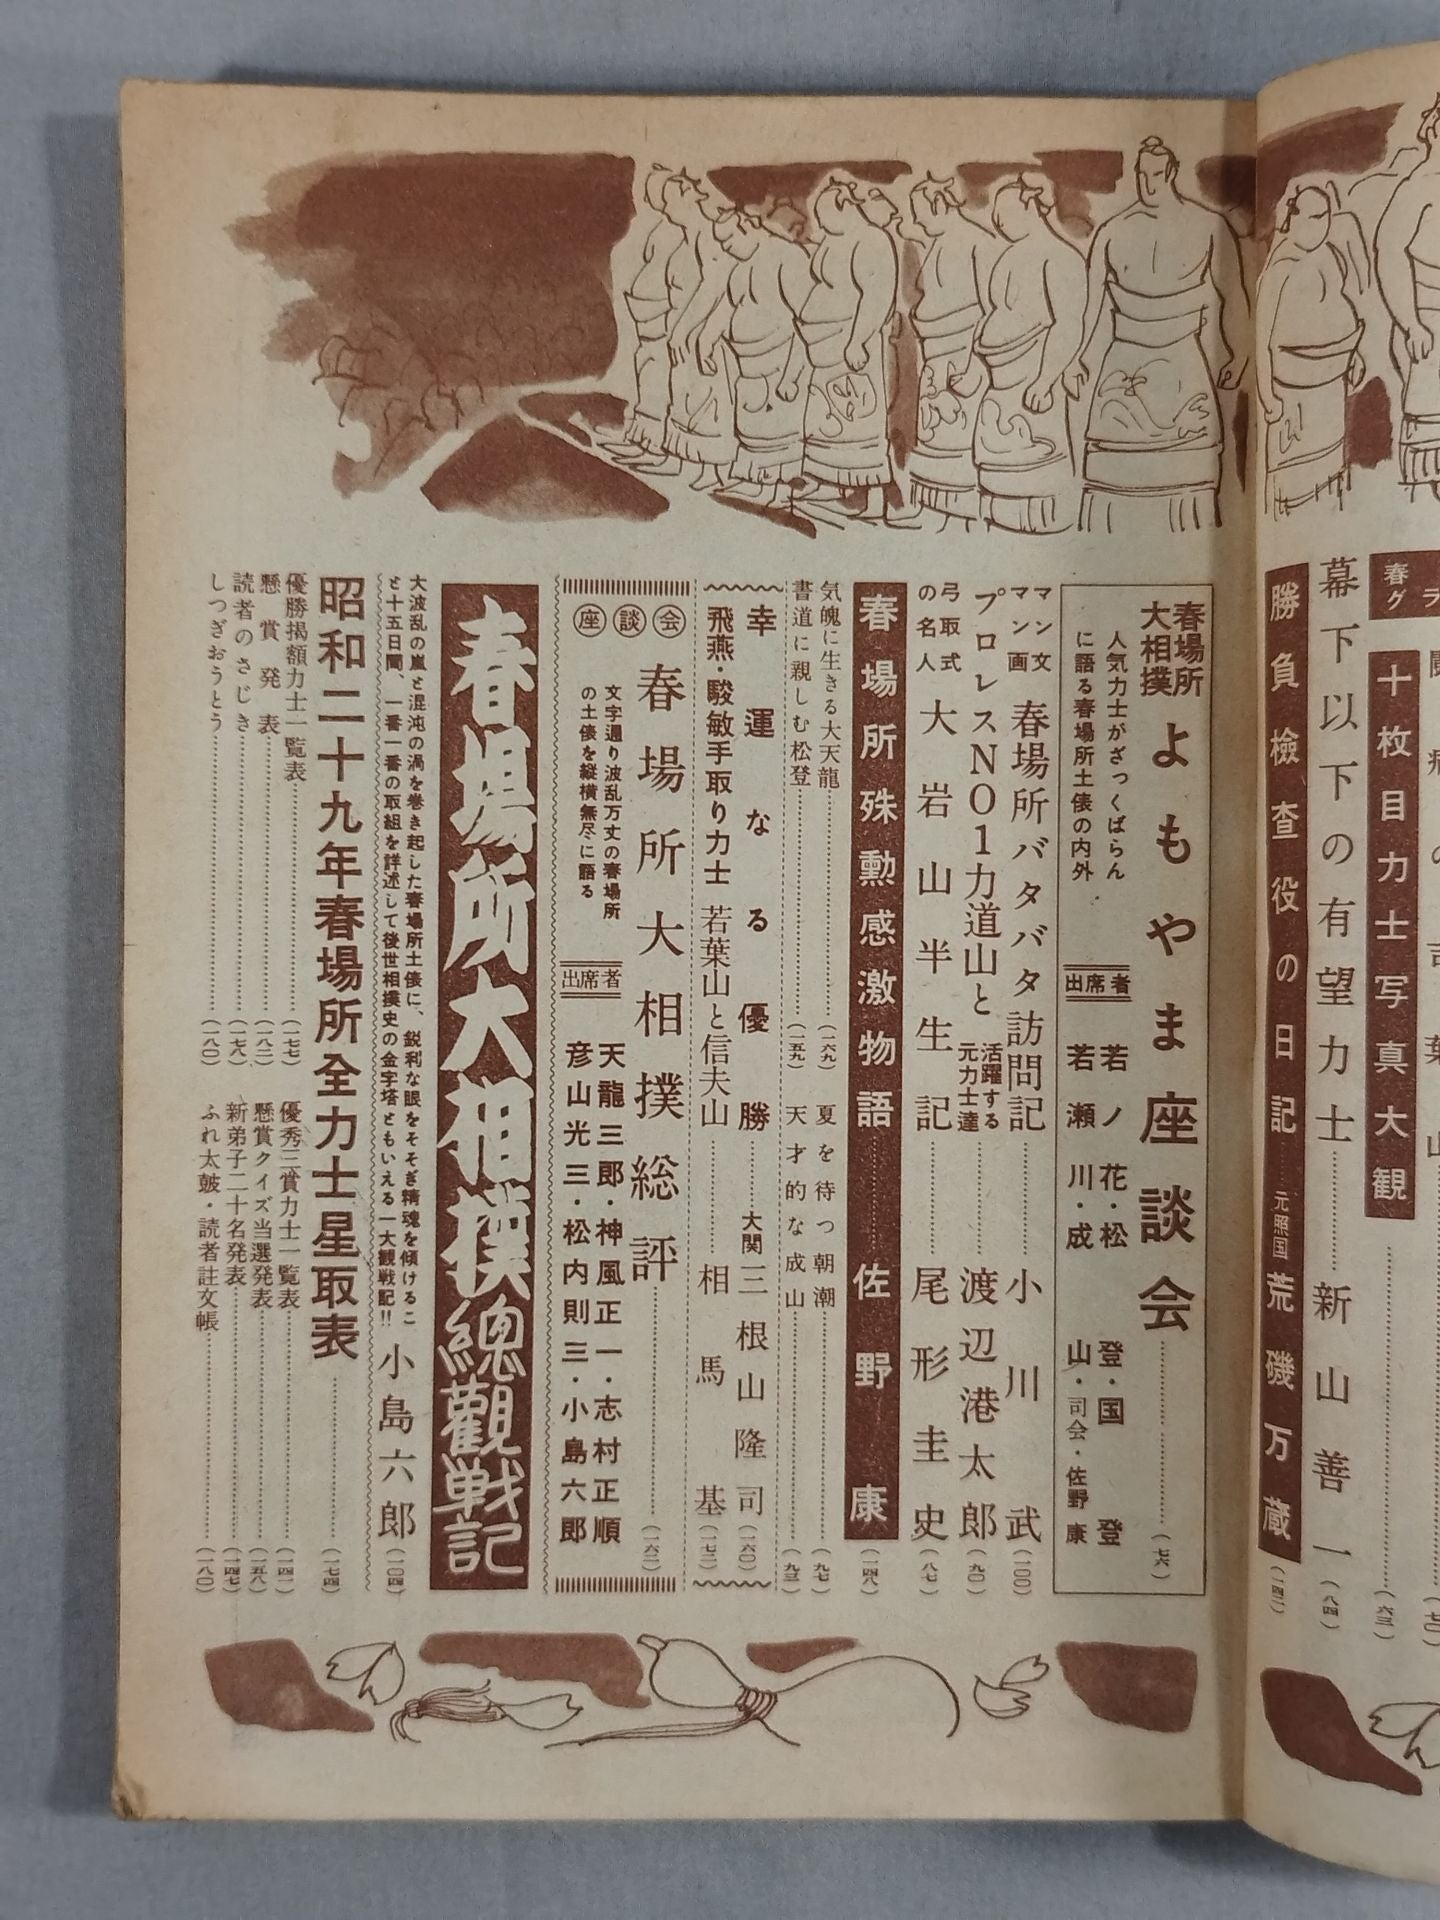 春グラ
十枚目力士写真大観
(六三)
幕下以下の有望力士
新山善一
(八四)
勝負檢査役の日記
元照国
荒磯万蔵
(一四二)
春場所
大相撲
よもやま座談会
(七六)
人気力士がざっくばらん
に語る春場所土俵の内外
出席者
若ノ花・松登・国登
若瀬川・成山・司会・佐野康
マン文
マン画
春場所バタバタ訪問記
小川武
(一〇〇)
プロレスNO1力道山と
活躍する
元力士達
渡辺港太郎
(九〇)
弓取式
の名人
大岩山半生記
尾形圭史
(八七)
春場所殊勳感激物語
佐野康
(一四八)
気魄に生きる大天龍
(一六九)
夏を待つ朝潮
(九七)
書道に親しむ松登
(一五九)
天才的な成山
(九三)
幸運なる優勝
大関
三根山隆司
(一六〇)
飛燕・駿敏手取り力士
若葉山と信夫山
相馬基
(一七二)
座談会
春場所大相撲総評
(一六二)
文字通り波乱万丈の春場所
の土俵を縦横無尽に語る
出席者
天龍三郎・神風正一・志村正順
彦山光三・松内則三・小島六郎
春場所大相撲總觀戦記
大波乱の嵐と混沌の渦を巻き起した春場所土俵に、鋭利な眼をそそぎ精魂を傾けるこ
と十五日間、一番一番の取組を詳述して後世相撲史の金字塔ともいえる一大観戦記!!
小島六郎
(一〇四)
昭和二十九年春場所全力士星取表
(一七四)
優勝掲額力士一覧表
(一七七)
優秀三賞力士一覧表
(一四一)
懸賞発表
(一八二)
懸賞クイズ当選発表
(一五八)
読者のさじき
(一七八)
新弟子二十名発表
(一四七)
しつぎおうとう
(一八〇)
ふれ太皷・読者註文帳
(一八〇)